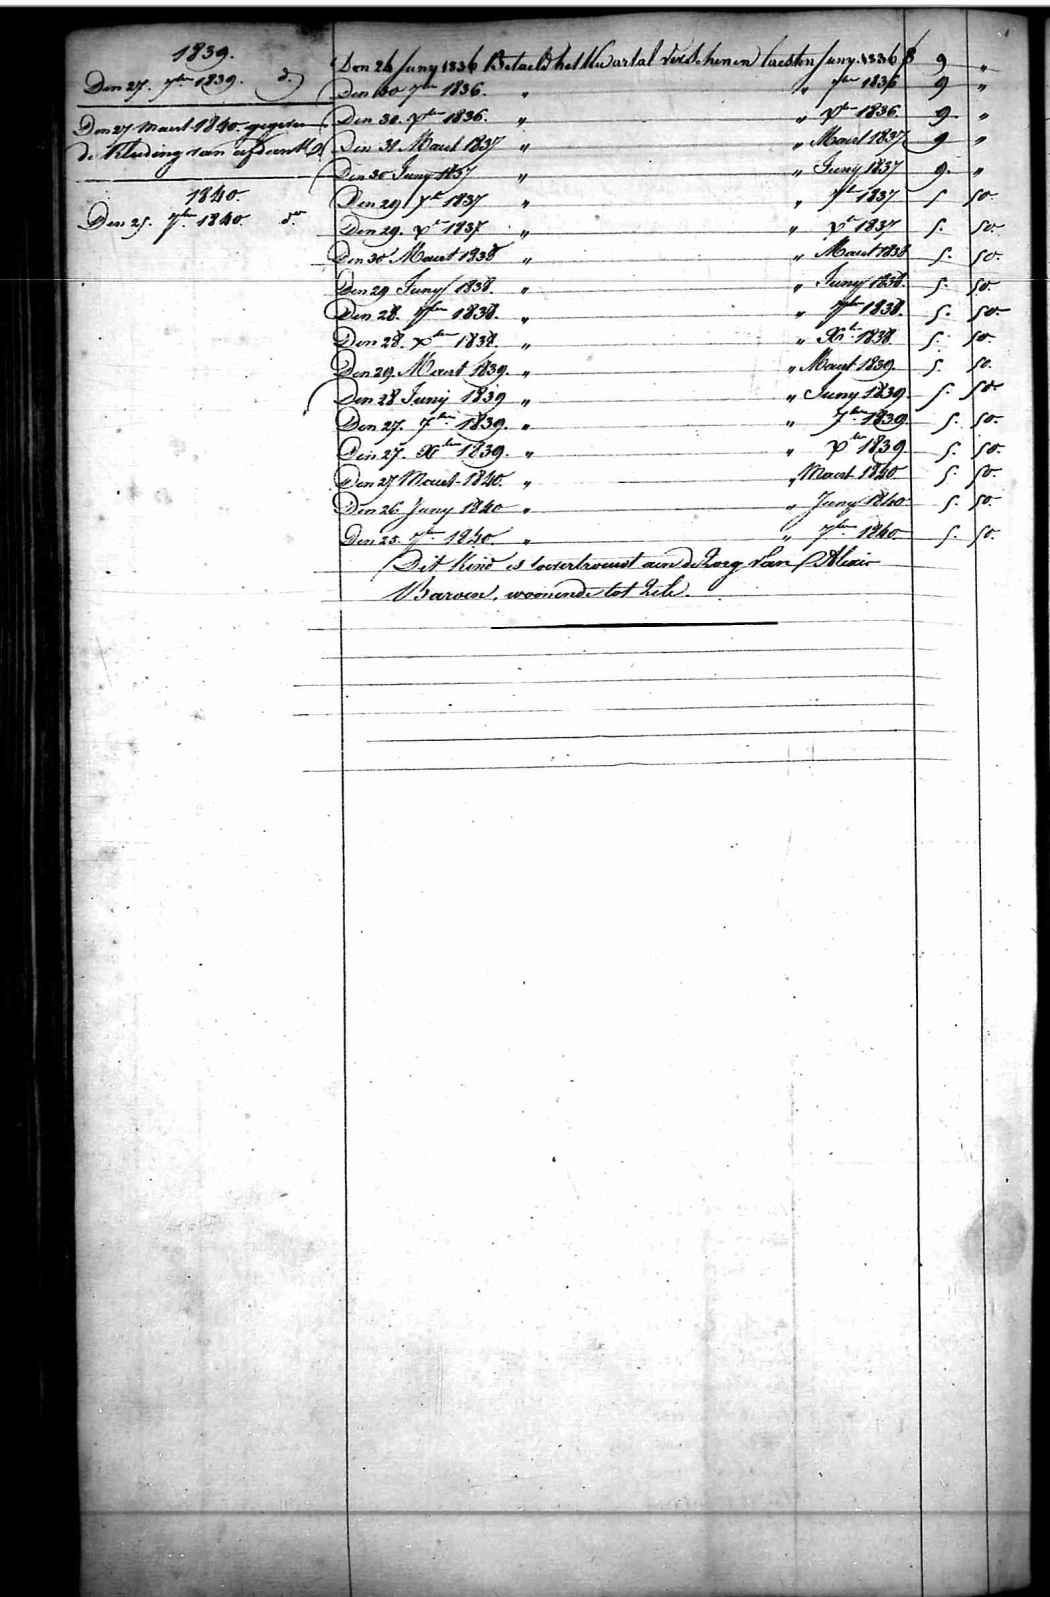 1839.
Den 27. 7ber 1839. do
Den 27 Maert 1840. gegeven
de Kleeding van
1840.
Den 25. 7ber 1840. do
Den 24 Juny 1836 Betaeld het Kwartal verschenen laesten Juny 1836 9 "
Den 30 7ber 1836. " " 7ber 1836 9 "
Den 30. Xber 1836. " " Xber 1836. 9. "
Den 31. Maert 1837 " " Maert 1837 9 "
Den 30 Juny 1837 " " Juny 1837 9. "
Den 29 7br 1837 " " 7br 1837 5 50.
Den 29. Xbr 1837. " " Xbr 1837 5. 50.
Den 30 Maert 1838 " " Maert 1838 5. 50.
Den 29 Juny 1838. " " Juny 1838. 5. 50.
Den 28. 7ber 1838. " " 7ber 1838. 5. 50.
Den 28. Xber 1838. " " Xbr 1838. 5. 50.
Den 29. Maert 1839. " " Maert 1839. 5. 50.
Den 28 Juny 1839 " " Juny 1839 5. 50.
Den 27. 7ber 1839. " " 7ber 1839 5. 50.
Den 27. Xber 1839. " " Xber 1839 5. 50.
Den 27 Maert 1840. " " Maert 1840. 5. 50.
Den 26 Juny 1840 " " Juny 1840 5. 50.
Den 25. 7ber 1840. " " 7ber 1840. 5. 50.
Dit Kind is toevertrouwt aen de Zorg van Alexis
Barven, woonende tot Zele.